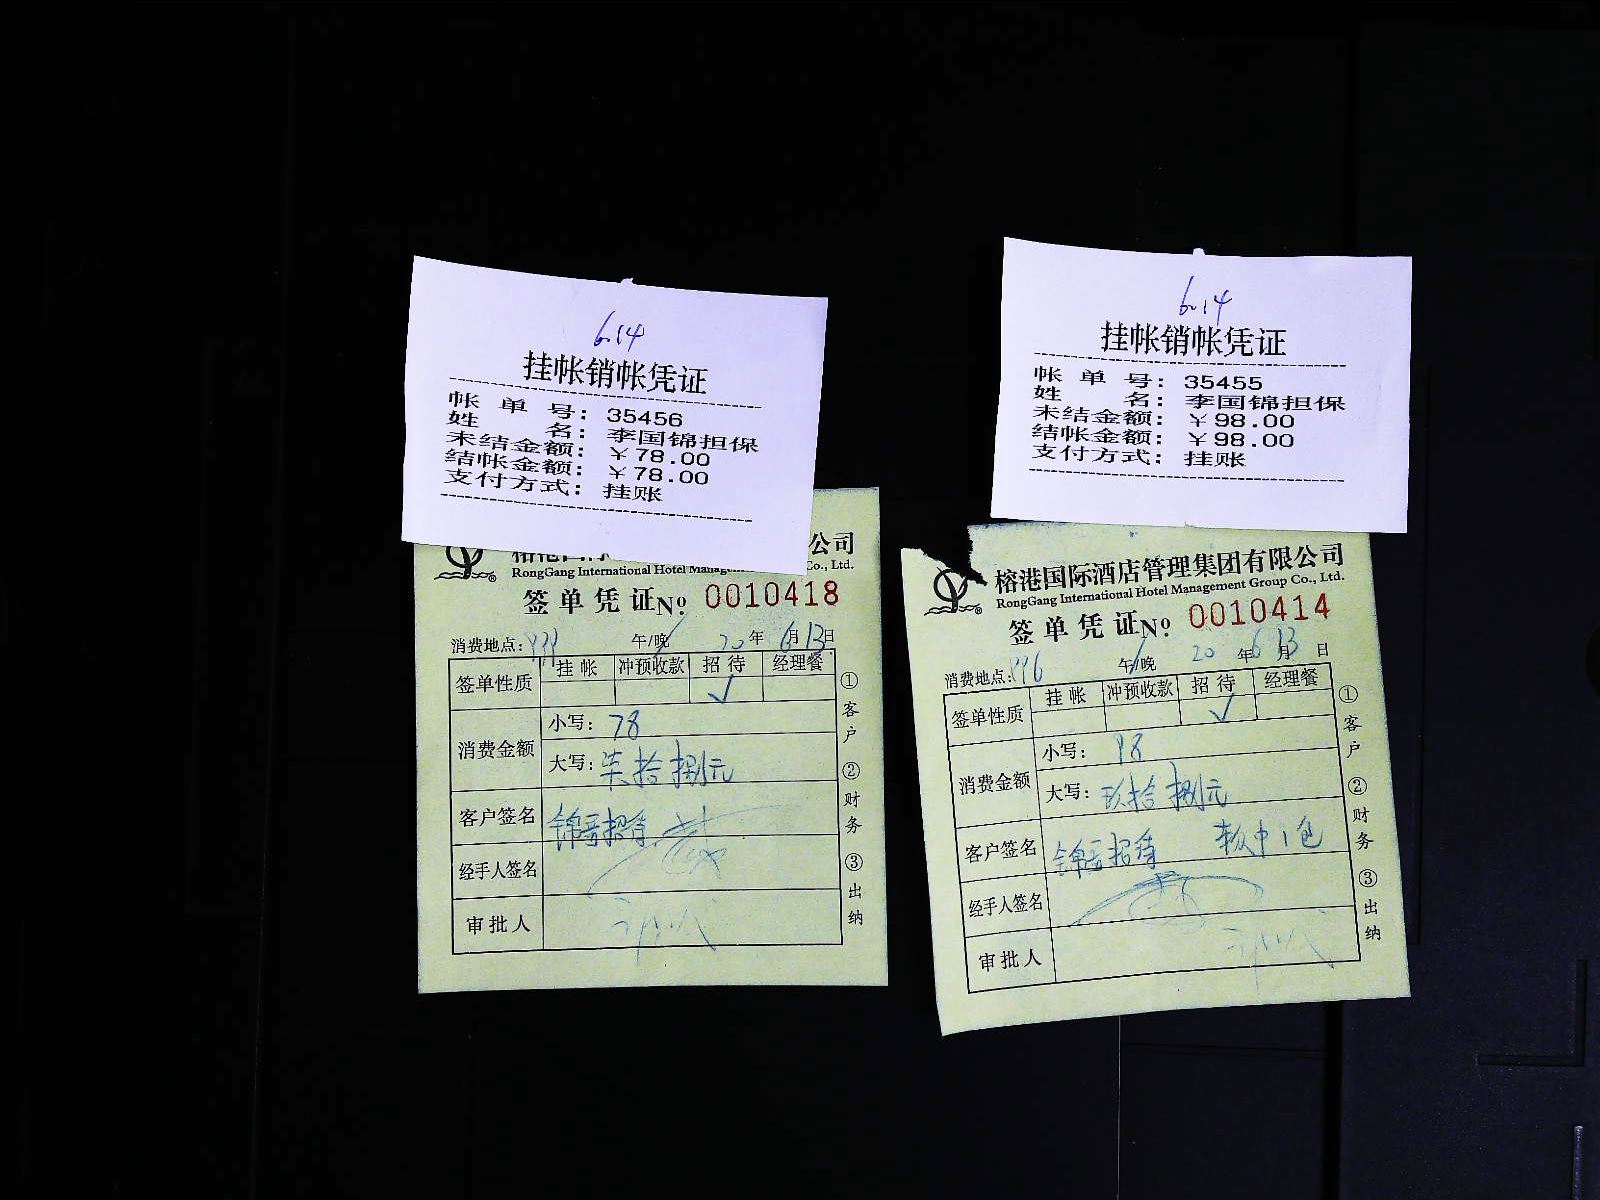 6.14
挂帐销帐凭证
帐单号：35456
姓名：李国锦担保
未结金额：￥78.00
结帐金额：￥78.00
支付方式：挂账
公司
RongGang International Hotel Co., Ltd.
签单凭证 № 0010418
消费地点： 午/晚 20 年 6月13日
签单性质 挂帐 冲预收款 招待 经理餐
√
消费金额 小写：78
大写：柒拾捌元
客户签名 锦晋招待
经手人签名
审批人
①客户 ②财务 ③出纳
6.14
挂帐销帐凭证
帐单号：35455
姓名：李国锦担保
未结金额：￥98.00
结帐金额：￥98.00
支付方式：挂账
榕港国际酒店管理集团有限公司
RongGang International Hotel Management Group Co., Ltd.
签单凭证 № 0010414
消费地点： 午/晚 20 年6月13日
签单性质 挂帐 冲预收款 招待 经理餐
√
消费金额 小写：98
大写：玖拾捌元
客户签名 锦晋招待 软中1包
经手人签名
审批人
①客户 ②财务 ③出纳